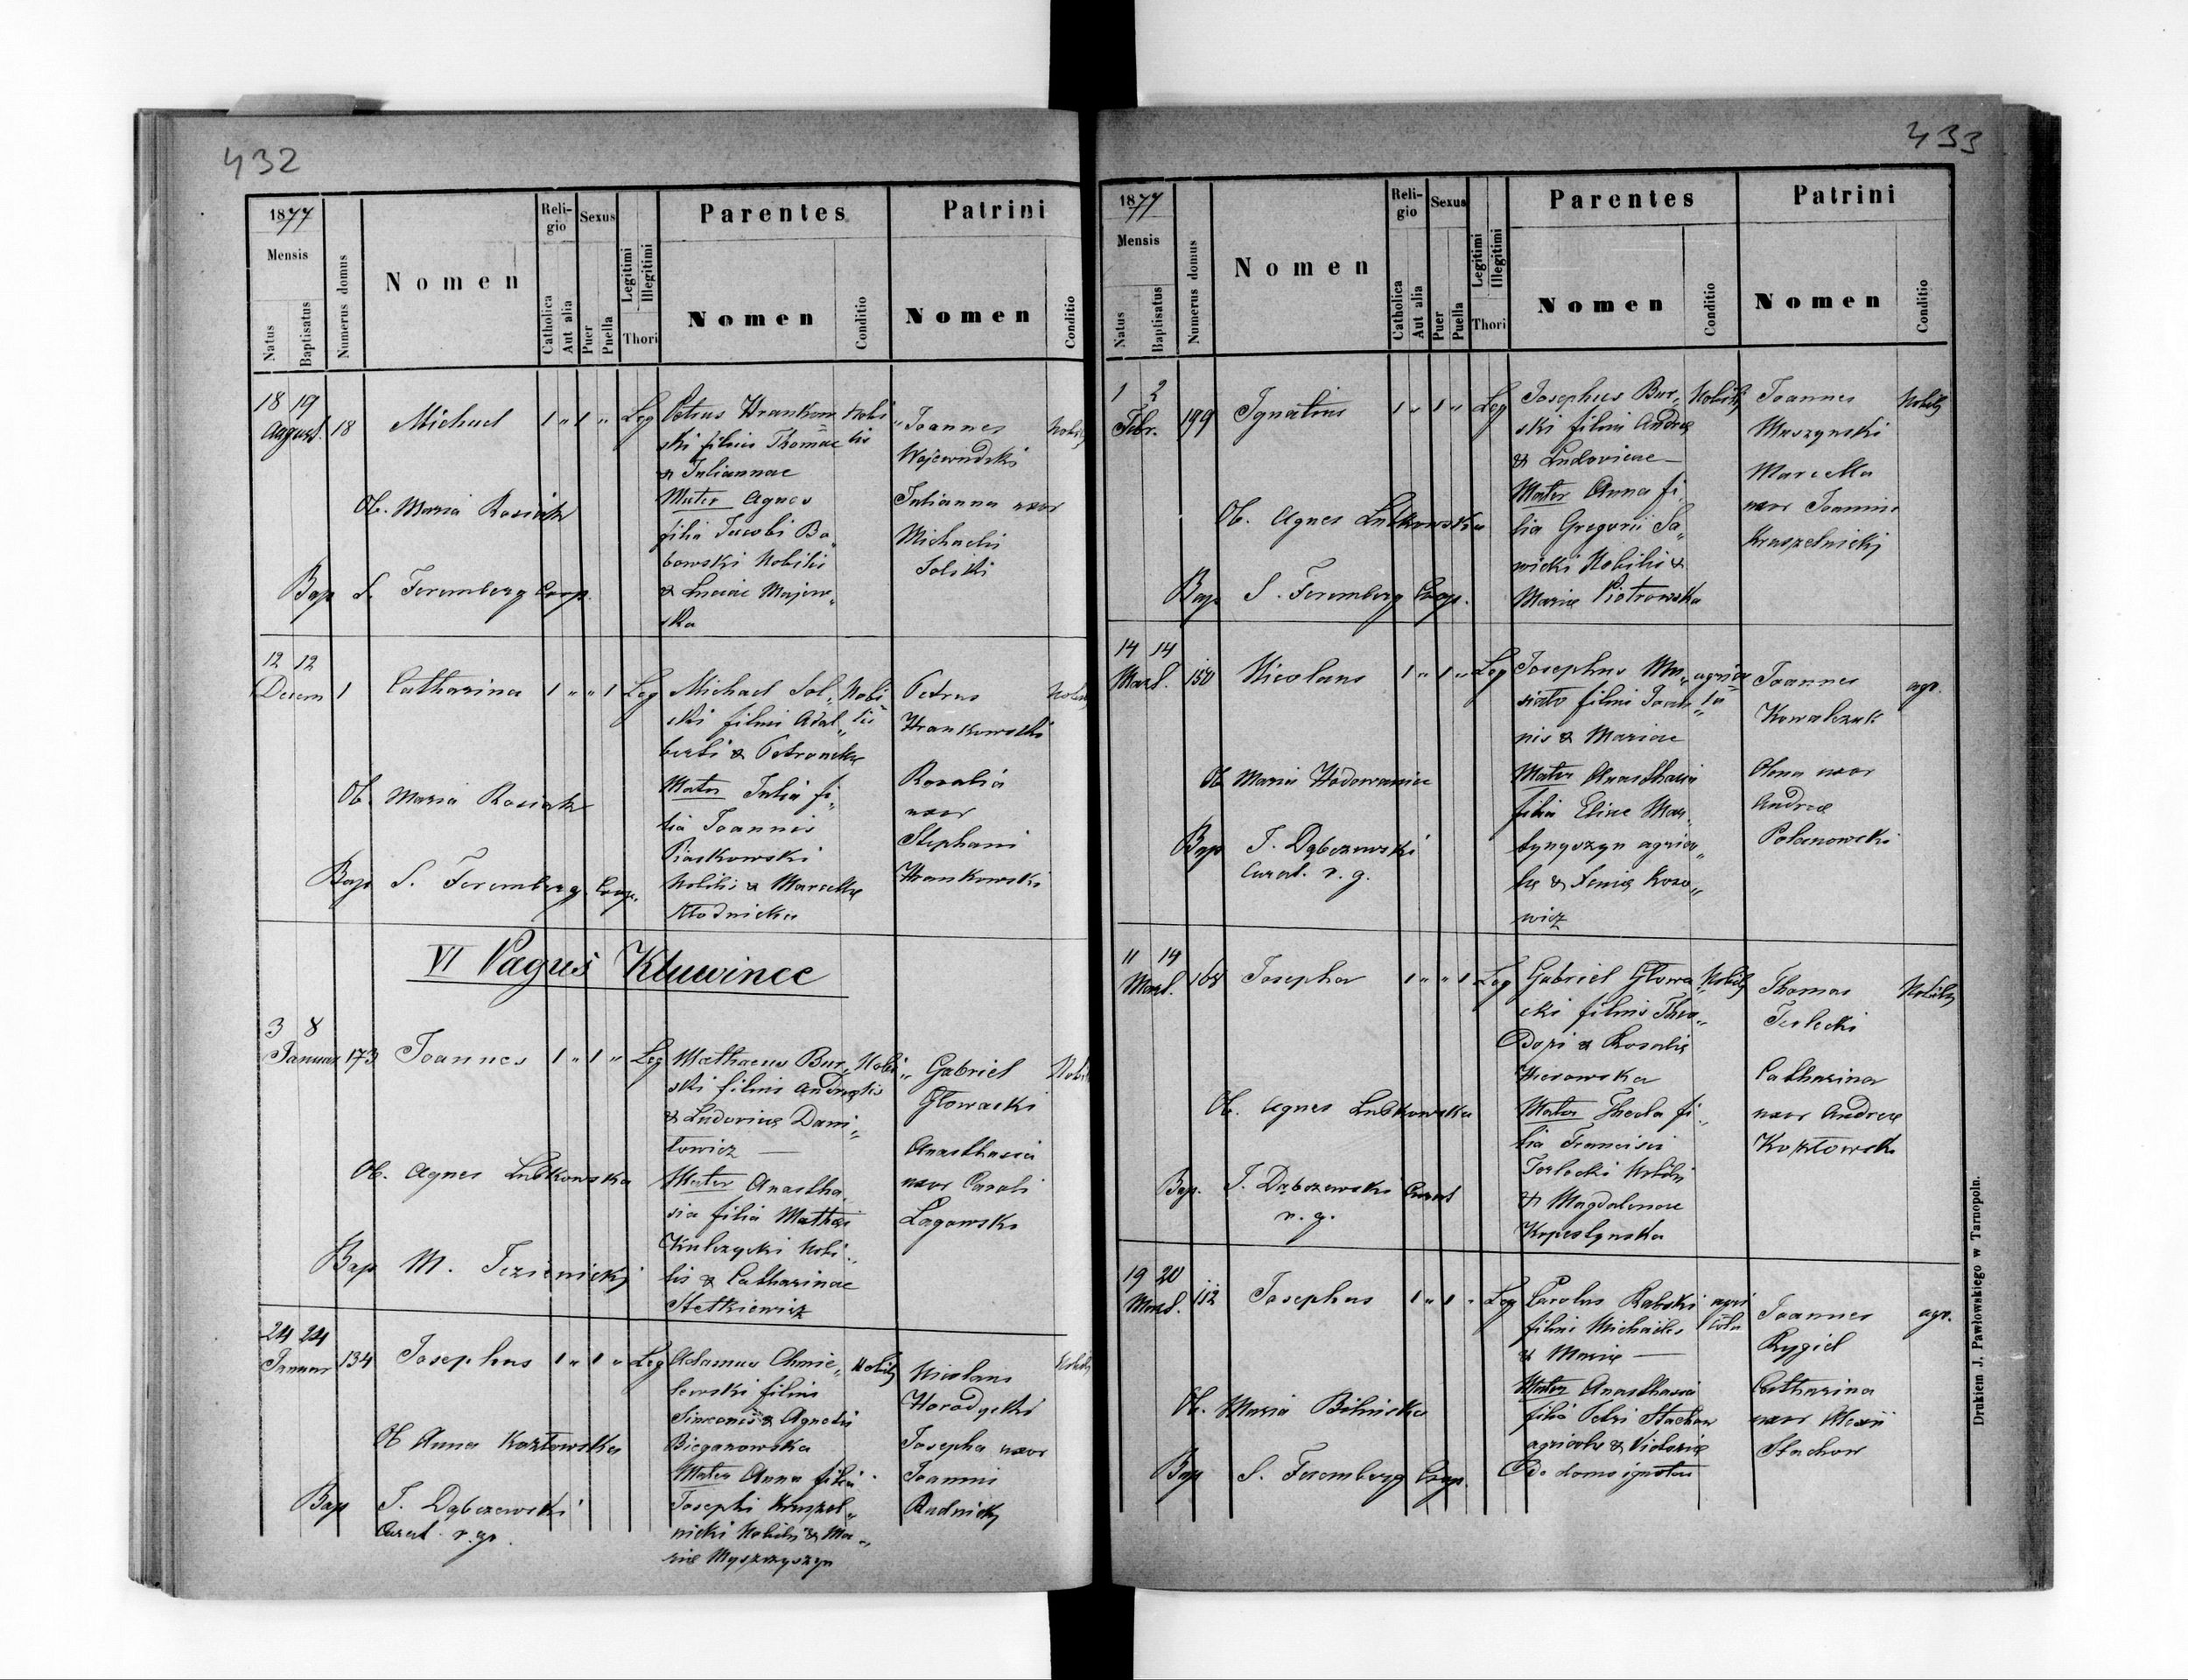 432
1877
Mensis
Natus
Baptisatus
Numerus domus
Nomen
Religio
Catholica
Aut alia
Sexus
Puer
Puella
Legitimi
Illegitimi
Thori
Parentes
Nomen
Conditio
Patrini
Nomen
Conditio
18 19
August. 18 Michael 1 " 1 " Leg
Ob. Maria Rosiak
Bap S. Feremberg Coop.
Petrus Hrankow
ski filius Thomae
& Juliannae
Mater Agnes
filia Jacobi Bo„
bowski Nobilis
& Luciae Majew„
ska
Nobi
lis
Joannes
Wojewudski
Julianna uxor
Michaelis
Solski
12 12
Decem 1 Catharina 1 " " 1 Leg
Ob. Maria Rosiak
Bap S. Feremberg Coop.
Michael Sol„
ski filius Adal„
berti & Petronelae
Mater Julia fi„
lia Joannis
Piaskowski
Nobilis & Marcellae
Kłodnicka
Nobi
lis
Petrus
Hrankowski
Rosalia
uxor
Stephani
Hrankowski
VI Pagus Kluwince
3 8
Januar 173 Joannes 1 " 1 " Leg
Ob. Agnes Lubkowska
Bap M.
Mathaeus Bur„
ski filius Andreae
& Ludovicae Dani„
lowicz —
Mater Anastha„
sia filia Mathaei
Kulczycki Nobi„
lis & Catharinae
Stetkiewicz
Nobi„
lis
Gabriel
Głowacki
Anasthasia
uxor Caroli
Lagowski
24 24
Januar 134 Josephus 1 " 1 " Leg
Ob Anna Kozłowska
Bap J. Dąbczewski
Curat. r. g.
Adamus Chmie„
lewski filius
Simeonis & Agnetis
Bieganowska
Mater Anna filia
Josephi Kruszel„
nicki Nobilis & Ma„
riae Myszczyszyn
Nobilis
Nicolaus
Horodyski
Josepha uxor
Joannis
Rudnicki
433
1877
Mensis
Natus
Baptisatus
Numerus domus
Nomen
Religio
Catholica
Aut alia
Sexus
Puer
Puella
Legitimi
Illegitimi
Thori
Parentes
Nomen
Conditio
Patrini
Nomen
Conditio
1 2
Febr. 199 Ignatius 1 " 1 " Leg
Ob. Agnes Lubkowska
Bap S. Feremberg Coop.
Josephus Bur„
ski filius Andreae
& Ludovicae —
Mater Anna fi„
lia Gregorii Sa„
wicki Nobilis &
Mariae Piotrowska
Nobilis
Joannes
Muszynski
Marcella
uxor Joannis
Kruszelnicki
Nobilis
14 14
Mart. 150 Nicolaus 1 " 1 " Leg
Ob Maria Hodowaniec
Bap J. Dąbczewski
Curat. r. g.
Josephus
filius Joan„
nis & Mariae
Mater Anasthasia
filia Eliae Mar„
tyngszyn agrico„
lae & Xeniae Koso„
wicz
agrico
la
Joannes
Kowalczuk
Olena uxor
Andreae
Polanowski
agr.
11 19
Mart. 168 Josepha 1 " " 1 Leg
Ob. Agnes Lubkowska
Bap. J. Dąbczewski Curat
r. g.
Gabriel Głowa„
cki filius Theo„
dori & Rosaliae
Mater Thecla fi„
lia Francisci
Terlecki Nobilis
& Magdalenae
Nobilis
Thomas
Terlecki
Catharina
uxor Andreae
Kozłowski
Nobilis
19 20
Mart. 112 Josephus 1 " 1 " Leg
Ob. Maria Bilinska
Bap S. Feremberg Coop.
Carolus Rabski
filius Michaelis
& Mariae —
Mater Anasthasia
filia Petri Stachow
agricolae & Victoriae
de domo ignotae
agri
cola
Joannes
Rygiel
Catharina
uxor Alexii
Stachow
agr.
Drukiem J. Pawłowskiego w Tarnopolu.